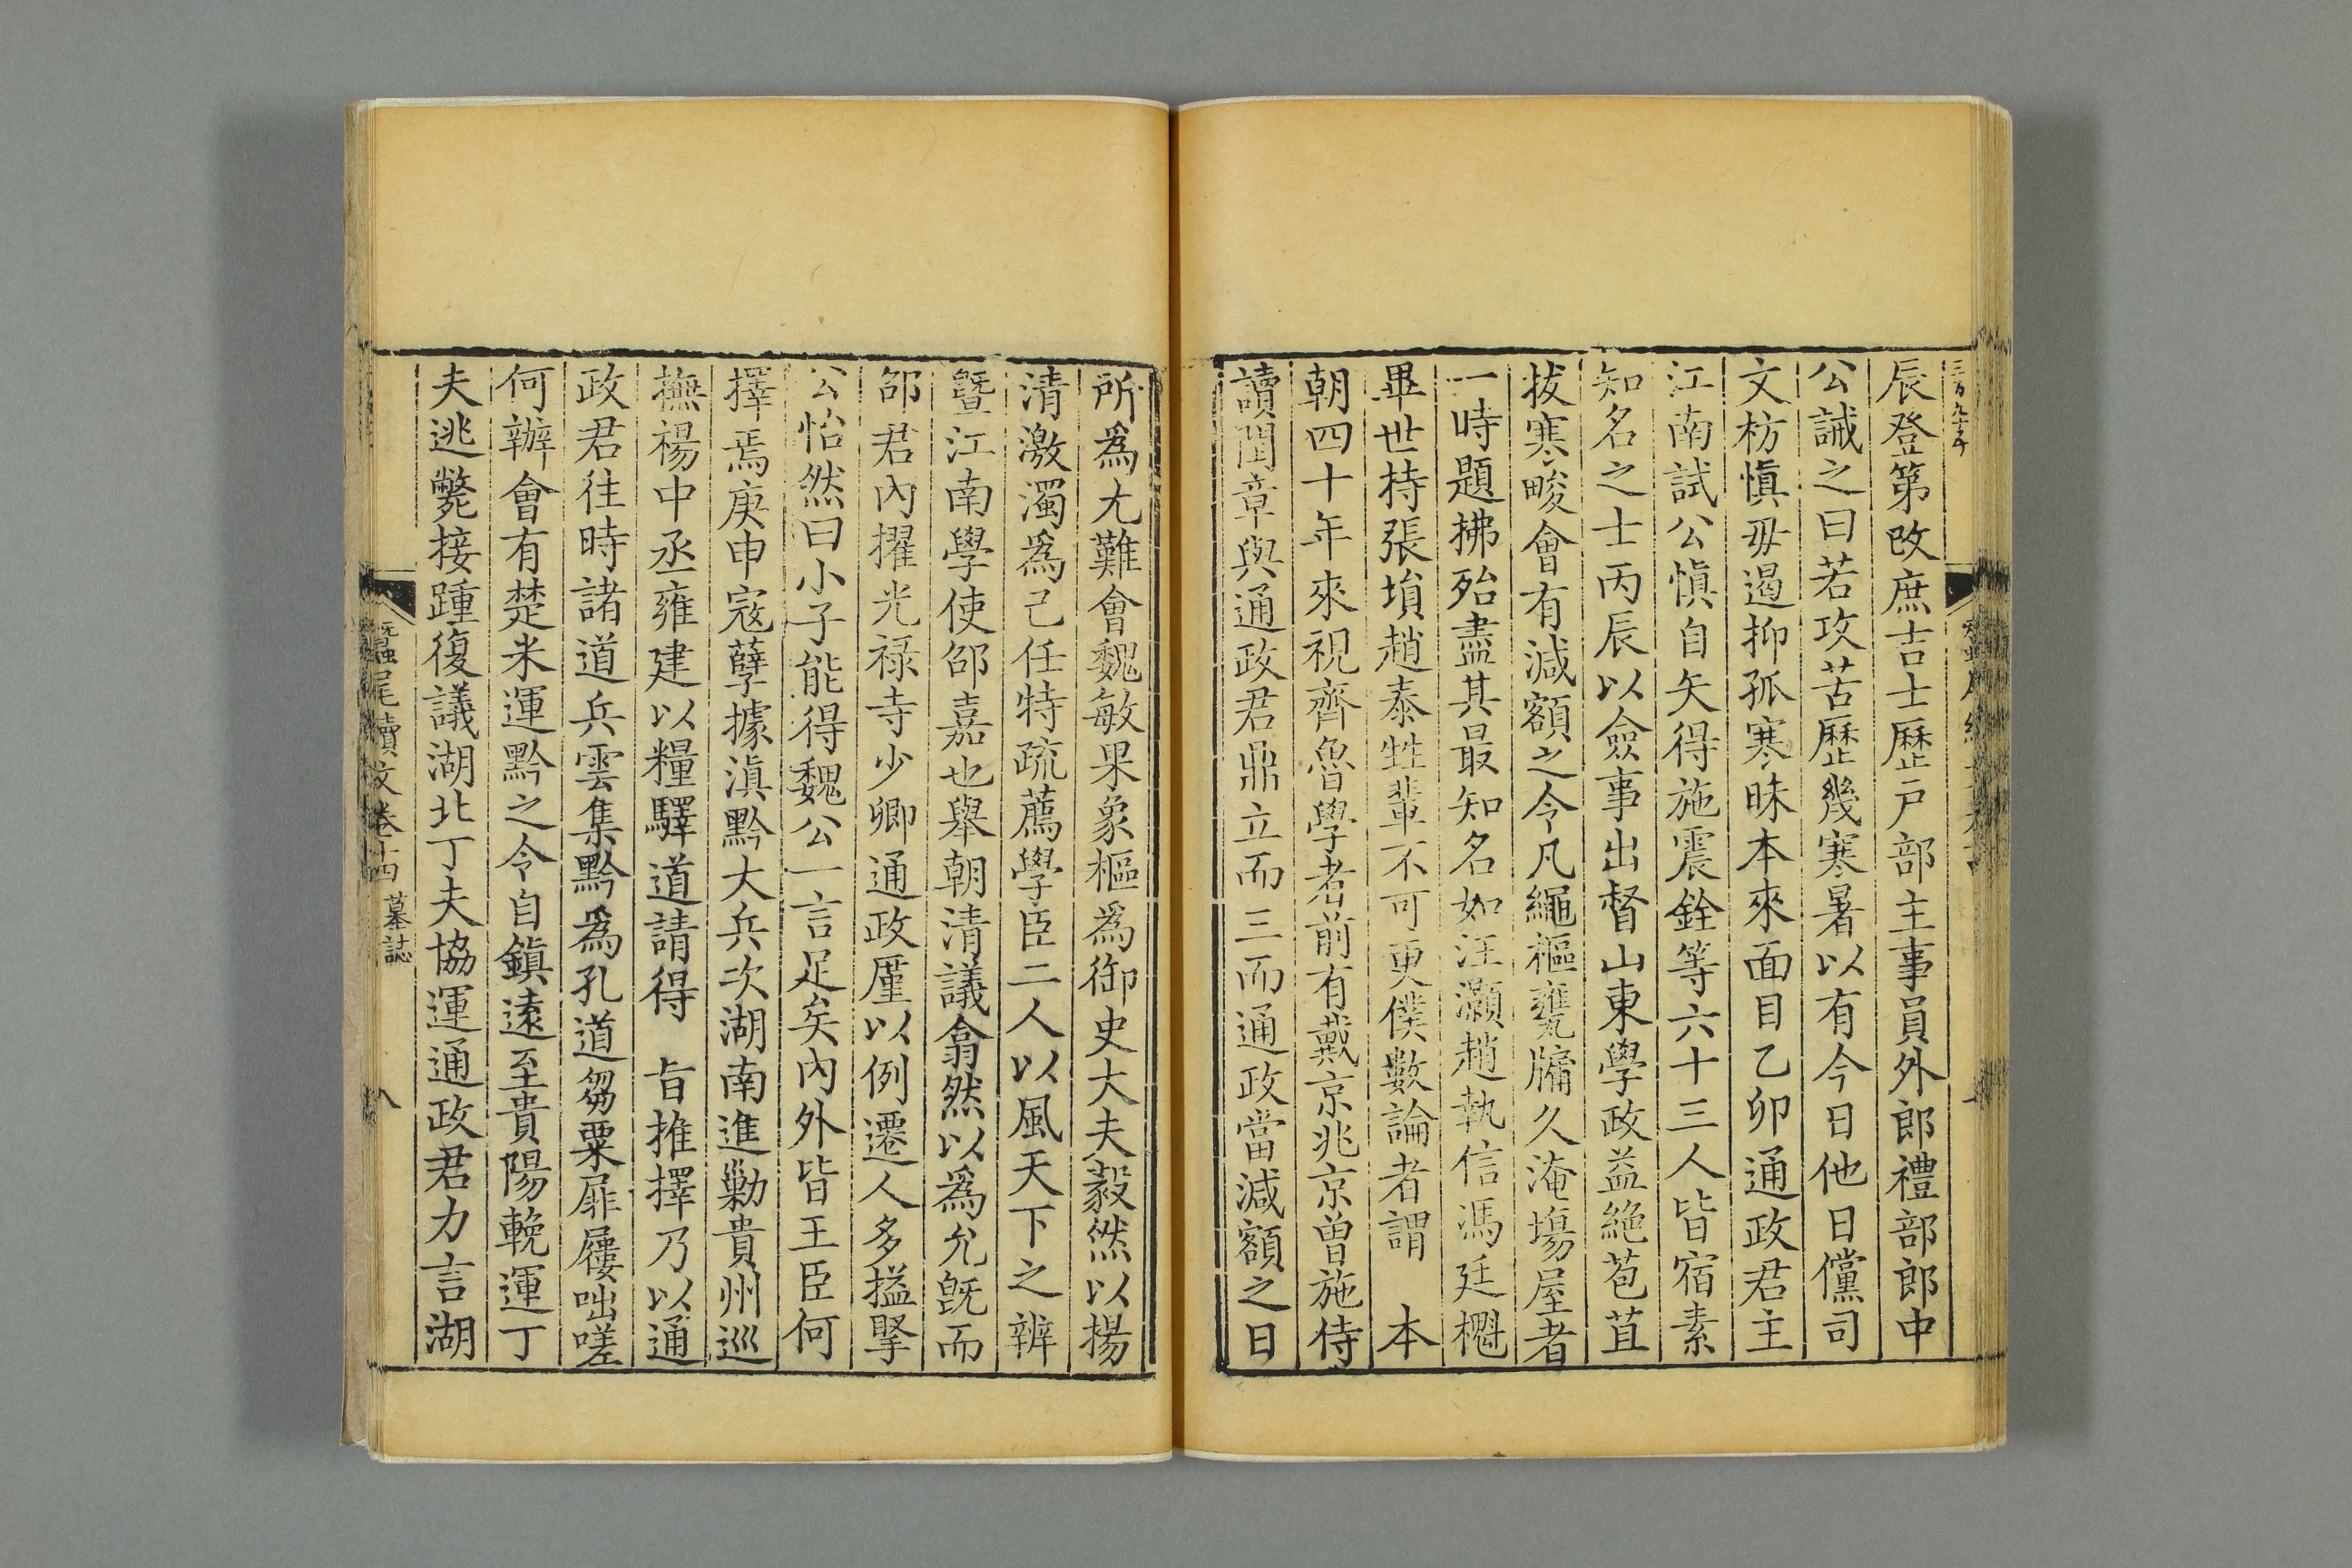 辰登第改庶吉士歷戸部主事員外郎禮部郎中
公誡之曰若攻苦歷幾寒暑以有今日他日儻司
文枋愼毋遏抑孤寒昧本來面目乙卯通政君主
江南試公愼自矢得施震銓等六十三人皆宿素
知名之士丙辰以僉事出督山東學政益絶苞苴
拔寒畯會有減額之令凡繩樞甕牖久淹塲屋者
一時題拂殆盡其最知名如汪灝趙執信馮廷櫆
畢世持張塤趙泰甡輩不可更僕數論者謂 本
朝四十年來視齊魯學者前有戴京兆京曾施侍
讀閏章與通政君鼎立而三而通政當減額之日
所爲尤難會魏敏果象樞為御史大夫毅然以揚
清激濁爲己任特疏薦學臣二人以風天下之辨
曁江南學使邵嘉也舉朝清議翕然以爲允旣而
邵君內擢光禄寺少卿通政厪以例遷人多搤掔
公怡然曰小子能得魏公一言足矣內外皆王臣何
擇焉庚申寇孽據滇黔大兵次湖南進勦貴州巡
撫楊中丞雍建以糧驛道請得 旨推擇乃以通
政君往時諸道兵雲集黔爲孔道芻粟屝屨咄嗟
何辦會有楚米運黔之令自鎮遠至貴陽輓運丁
夫逃斃接踵復議湖北丁夫協運通政君力言湖
蠶尾續文卷十四 墓誌
八